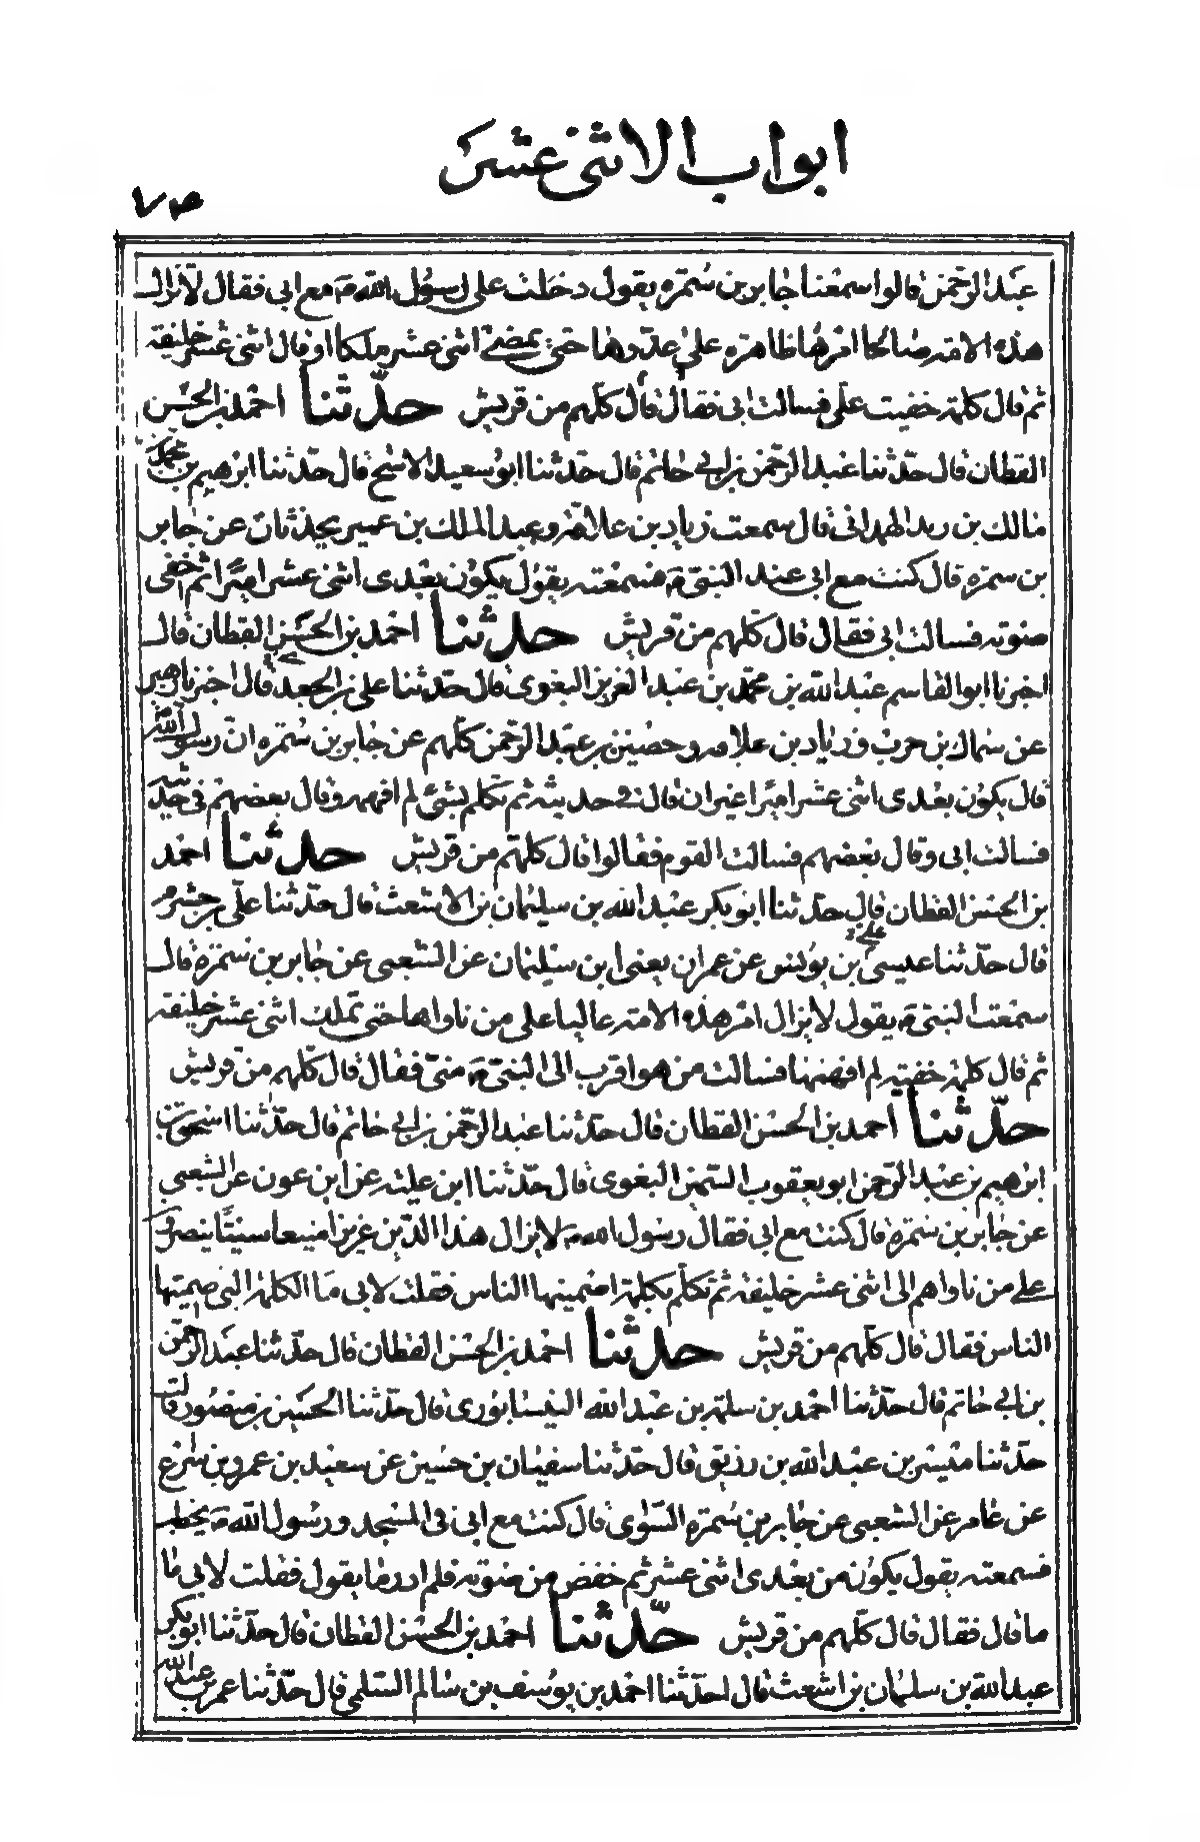 ابواب الاثنى عشر
عبد الرحمن قالوا سمعنا جابر بن سمرة يقول دخلت على رسول الله ص مع ابى فقال لا تزال
هذه الامة صالحا امرها ظاهرة على عدوها حتى يمضى اثنى عشر ملكا او قال اثنى عشر خليفة
ثم قال كلمة خفيت على فسالت ابى فقال قال كلهم من قريش حدثنا احمد بن الحسن
القطان قال حدثنا عبد الرحمن بن ابى حاتم قال حدثنا ابو سعيد الاشج قال حدثنا ابرهيم بن محمد
مالك بن زيد الهمدانى قال سمعت زياد بن علاقة وعبد الملك بن عمير يحدثان عن جابر
بن سمرة قال كنت مع ابى عند النبى ص فسمعته يقول يكون بعدى اثنى عشر اميرا ثم اخفى
صوته فسالت ابى فقال قال كلهم من قريش حدثنا احمد بن الحسن القطان قال
اخبرنا ابو القاسم عبد الله بن محمد بن عبد العزيز البغوى قال حدثنا على بن الجعد قال اخبرنا زهير
عن سماك بن حرب وزياد بن علاقه وحصين بن عبد الرحمن كلهم عن جابر بن سمرة ان رسول الله
قال يكون بعدى اثنى عشر اميرا غير ان قال فى حديثه ثم تكلم بشئ لم افهمه وقال بعضهم فى حديثه
فسالت ابى وقال بعضهم فسالت القوم فقالوا قال كلهم من قريش حدثنا احمد
بن الحسن القطان قال حدثنا ابو بكر عبد الله بن سليمان بن الاشعث قال حدثنا على بن خشرم
قال حدثنا عيسى بن يونس عن عمران يعنى ابن سليمان عن الشعبى عن جابر بن سمرة قال
سمعت النبى ص يقول لا يزال امر هذه الامة عاليا على من ناواها حتى تملك اثنى عشر خليفة
ثم قال كلمة خفية لم افهمها فسالت من هو اقرب الى النبى ص منى فقال قال كلهم من قريش
حدثنا احمد بن الحسن القطان قال حدثنا عبد الرحمن بن ابى حاتم قال حدثنا اسحق بن
ابرهيم بن عبد الرحمن ابو يعقوب البغوى قال حدثنا ابن علية عن ابن عون عن الشعبى
عن جابر بن سمرة قال كنت مع ابى فقال رسول الله ص لا يزال هذا الدين عزيزا منيعا ينصرون
على من ناواهم الى اثنى عشر خليفة ثم تكلم بكلمة اصمنيها الناس فقلت لابى ما الكلمة التى صمنيها
الناس فقال قال كلهم من قريش حدثنا احمد بن الحسن القطان قال حدثنا عبد الرحمن
بن ابى حاتم قال حدثنا احمد بن سلمة بن عبد الله النيسابورى قال حدثنا الحسين بن منصور قال
حدثنا مبشر بن عبد الله بن رزيق قال حدثنا سفيان بن حسين عن سعيد بن عمرو بن اشوع
عن عامر عن الشعبى عن جابر بن سمرة السوائى قال كنت مع ابى فى المسجد ورسول الله ص يخطب
فسمعته يقول يكون من بعدى اثنى عشر ثم خفض من صوته فلم ادر ما يقول فقلت لابى ما
ما قال فقال قال كلهم من قريش حدثنا احمد بن الحسن القطان قال حدثنا ابو بكر
عبد الله بن سليمان بن اشعث قال حدثنا احمد بن يوسف بن سالم السلمى قال حدثنا عمر بن عبد الله